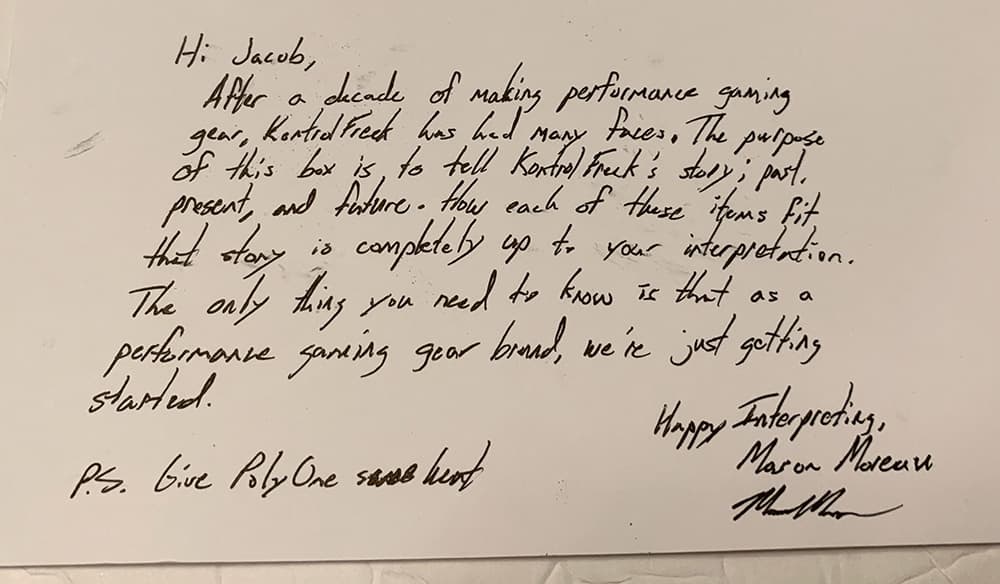 Hi Jacob,
After a decade of making performance gaming
gear, KontrolFreek has had many faces. The purpose
of this box is, to tell KontrolFreek's story; past,
present, and future. How each of these items fit
that story is completely up to your interpretation.
The only thing you need to know is that as a
performance gaming gear brand, we're just getting
started.
Happy Interpreting,
Mason Moreau
P.S. Give PolyOne some heat